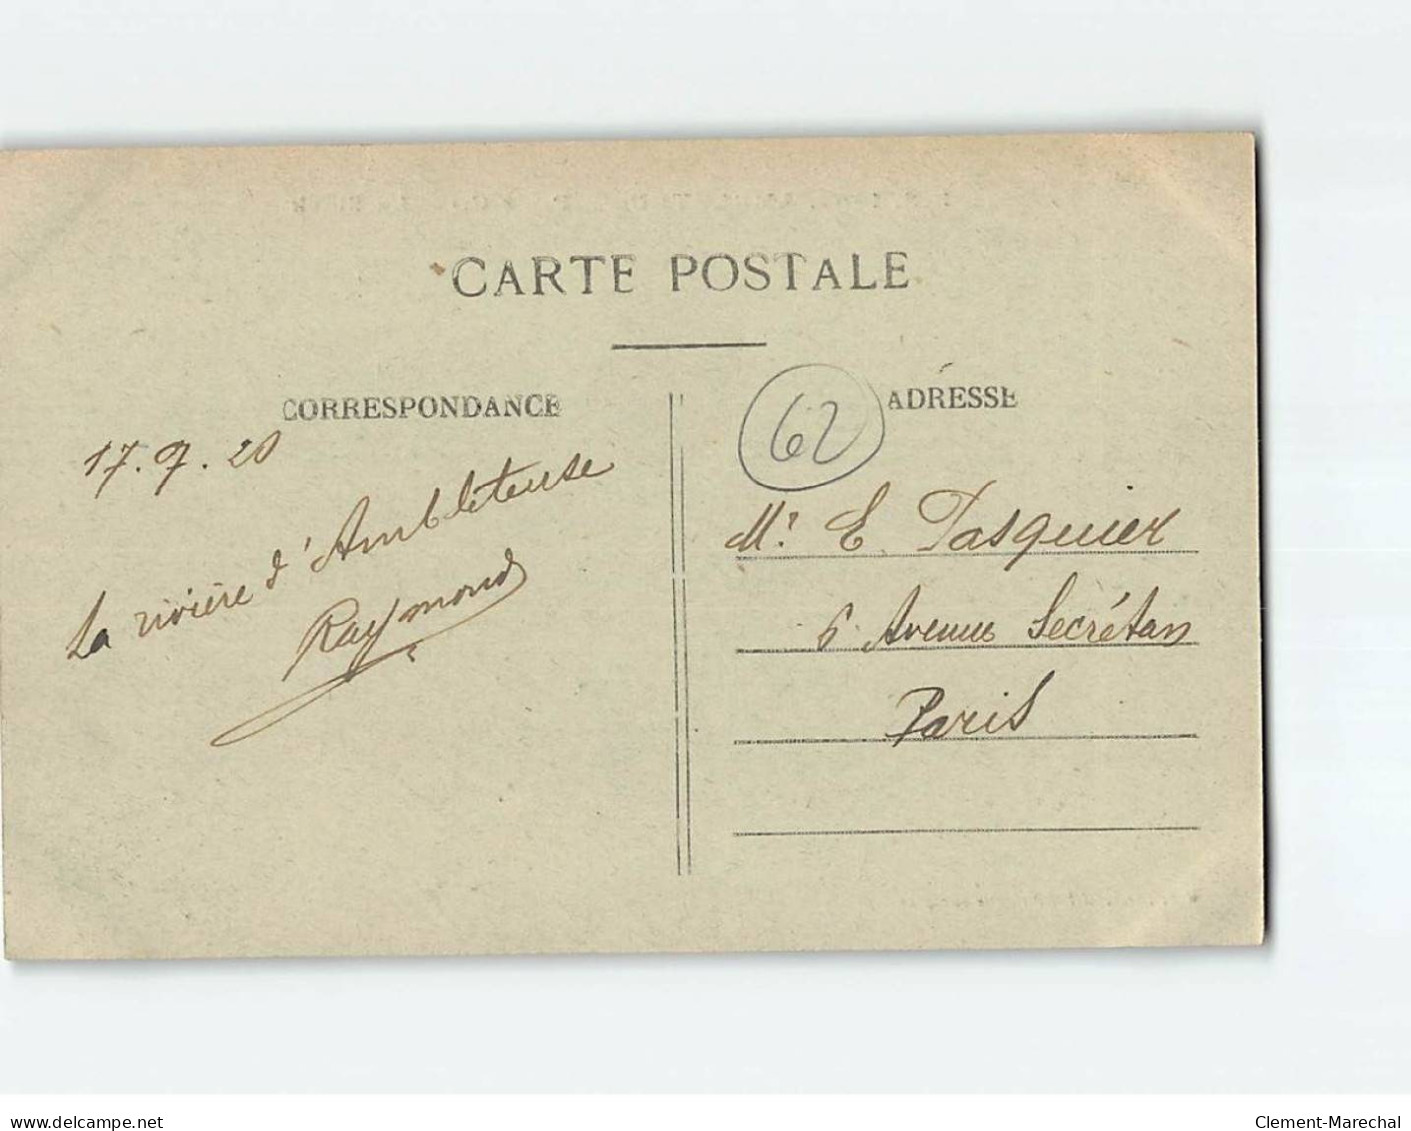 CARTE POSTALE
CORRESPONDANCE
17.9.20
La rivière d'Ambleteuse
Raymond
62
ADRESSE
Mr E. Pasquier
6 Avenue Secrétan
Paris
delcampe.net
Clement-Marechal